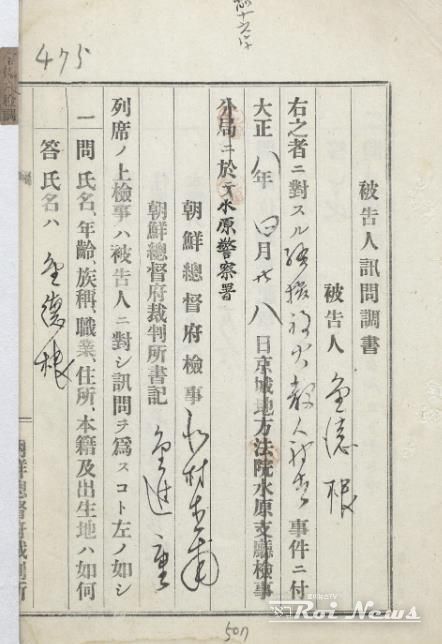 475
被告人訊問調書
被告人 金德根
右之者ニ對スル騷擾放火殺人被告事件ニ付
大正八年四月廿八日京城地方法院水原支廳檢事
分局ニ於テ水原警察署
朝鮮總督府檢事
朝鮮總督府裁判所書記 金進重
列席ノ上檢事ハ被告人ニ對シ訊問ヲ爲スコト左ノ如シ
一問 氏名、年齡、族稱、職業、住所、本籍及出生地ハ如何
答 氏名ハ 金德根
朝鮮總督府裁判所
507
Roi News